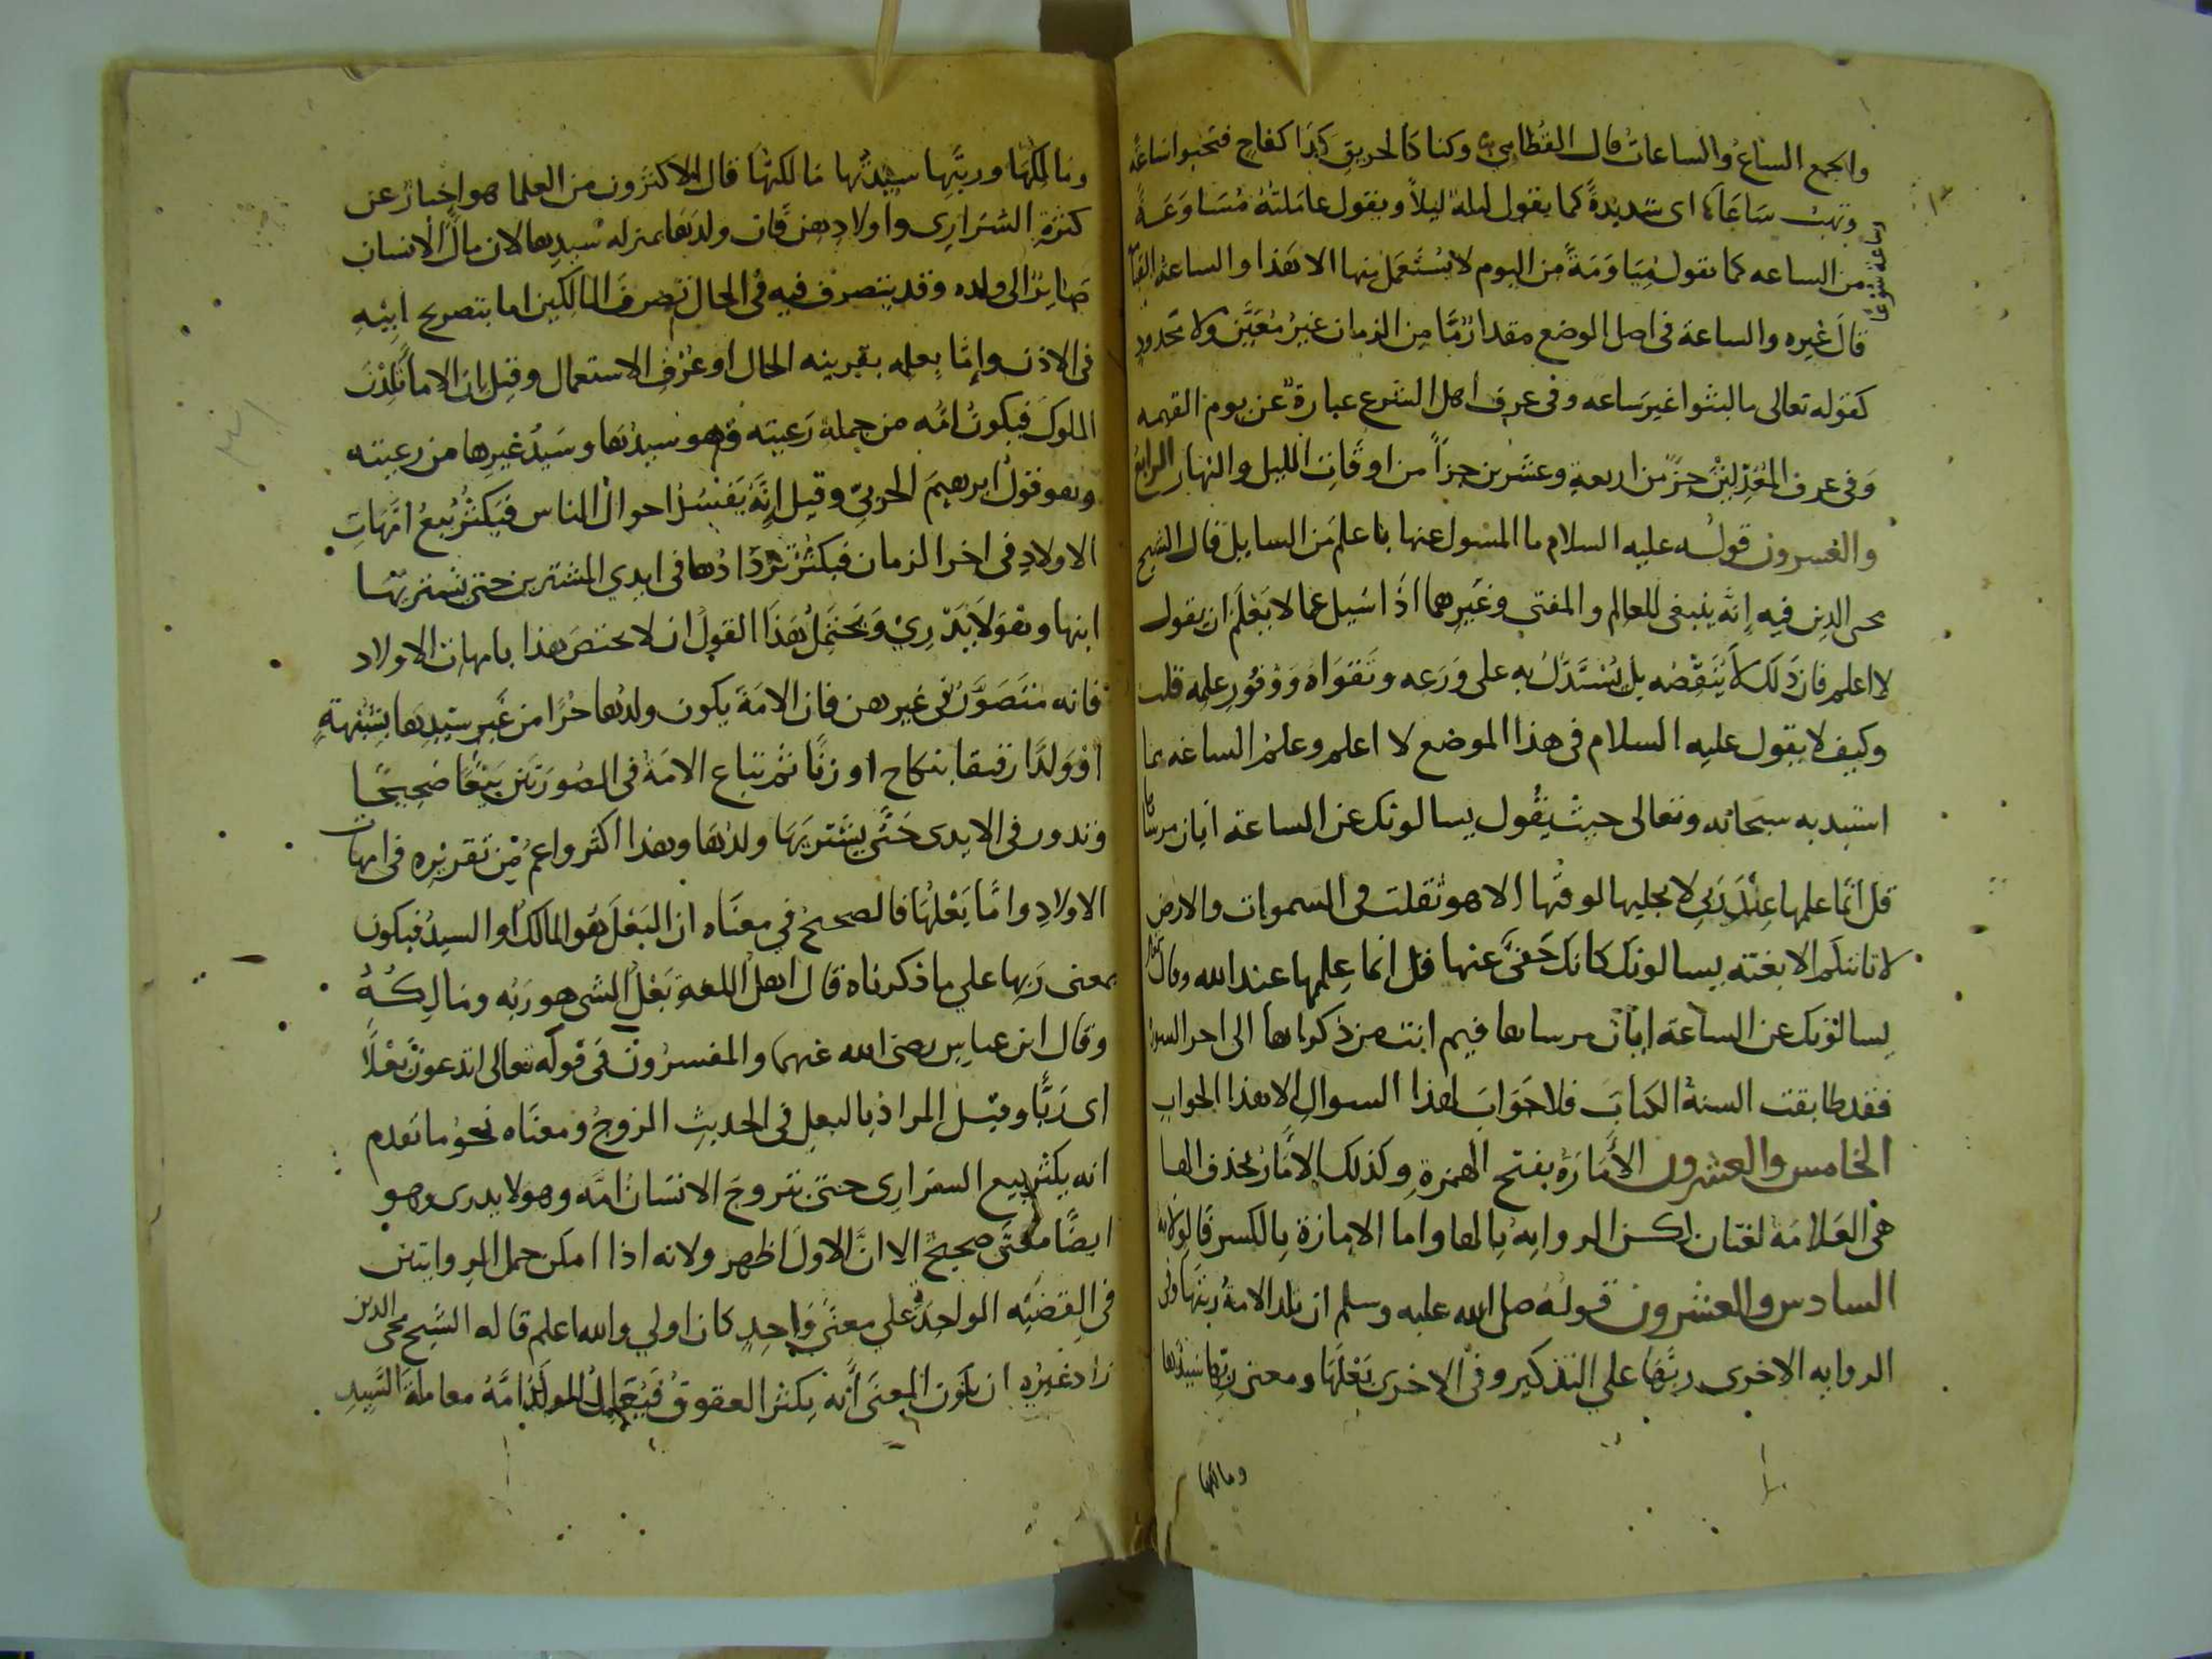 والجمع الساع والساعات قال القطامي وكنا كالحريق كذا كفاح فتخبوا ساعة
وتهب ساعا اى شديدة كما يقول ليلة ليلا ويقول عاملته مساوعة
وساعة سوعا
من الساعه كما نقول مياومة من اليوم لا يستعمل منها الا هذا والساعة القيامة
قال غيره والساعة فى اصل الوضع مقدار ما من الزمان غير معين ولا محدود
كقوله تعالى ما لبثوا غير ساعه وفى عرف اهل الشرع عبارة عن يوم القيمه
وفى عرف المعدلين جزء من اربعة وعشرين جزأ من اوقات الليل والنهار الرابع
والعشرون قوله عليه السلام ما المسول عنها باعلم من السايل قال الشيخ
محى الدين فيه إنه ينبغى للعالم والمفتى وغيرهما اذا سيل عما لا يعلم ان يقول
لا اعلم فان ذلك لا ينقصه بل يستدل به على ورعه وتقواه ووفور علمه قلت
وكيف لا يقول عليه السلام فى هذا الموضع لا اعلم وعلم الساعه مما
استبد به سبحانه وتعالى حيث يقول يسالونك عن الساعة ايان مرساها
قل انما علمها عند ربي لا يجليها لوقتها الا هو ثقلت فى السموات والارض
لا تاتيكم الا بغتة يسالونك كانك حفى عنها قل انما علمها عند الله وقال
يسالونك عن الساعة ايان مرساها فيم انت من ذكراها الى اخر السورة
فقد طابقت السنة الكتاب فلا جواب لهذا السوال الا هذا الجواب
الخامس والعشرون الأمارة بفتح الهمزة وكذلك الامار بحذف الها
هى العلامة لغتان لكن الروايه بالها واما الامارة بالكسر فالولايه
السادس والعشرون قوله صلى الله عليه وسلم ان تلد الامة ربتها وفى
الروايه الاخرى ربها علي التذكير وفى الاخرى بعلها ومعنى ربها سيدها
ومالكها
ومالكها وربتها سيدتها مالكتها قال الاكثرون من العلما هو اخبار عن
كثرة السراري واولادهن فان ولدها بمنزله سيدها لان مال الانسان
صاير الى ولده وقد يتصرف فيه فى الحال تصرف المالكين اما بتصريح ابيه
فى الاذن وإما بعلمه بقرينه الحال او عرف الاستعمال وقيل ان الاما تلدن
الملوك فيكون امه من جملة رعيته وهو سيدها وسيد غيرها من رعيته
وهو قول ابرهيم الحربي وقيل انه يفسد احوال الناس فيكثر بيع امهات
الاولاد فى اخر الزمان فيكثر تردادها فى ايدي المشترين حتى يشتريها
ابنها وهو لا يدري ويحتمل هذا القول ان لا يختص هذا بامهات الاولاد
فانه متصور فى غيرهن فان الامة يكون ولدها حرا من غير سيدها بشبهة
او ولدا رقيقا بنكاح او زنا ثم تباع الامة فى الصورتين بيعا صحيحا
وتدور فى الايدى حتى يشتريها ولدها وهذا اكثر واعم من تقريره فى امهات
الاولاد واما بعلها فالصحيح في معناه ان البعل هو المالك او السيد فيكون
بمعنى ربها علي ما ذكرناه قال اهل اللغة بعل الشى هو ربه ومالكه
وقال ابن عباس رضى الله عنهما والمفسرون فى قوله تعالى اتدعون بعلا
اى ربا وقيل المراد بالبعل فى الحديث الزوج ومعناه نحو ما تقدم
انه يكثر بيع السرارى حتى يتزوج الانسان امه وهو لا يدرى وهو
ايضا معنى صحيح الا ان الاول اظهر ولانه اذا امكن حمل الروايتين
فى القضيه الواحدة علي معنى واحد كان اولي والله اعلم قاله الشيخ محى الدين
زاد غيره ان يكون المعنى أنه يكثر العقوق فيعامل الولد امه معاملة السيد